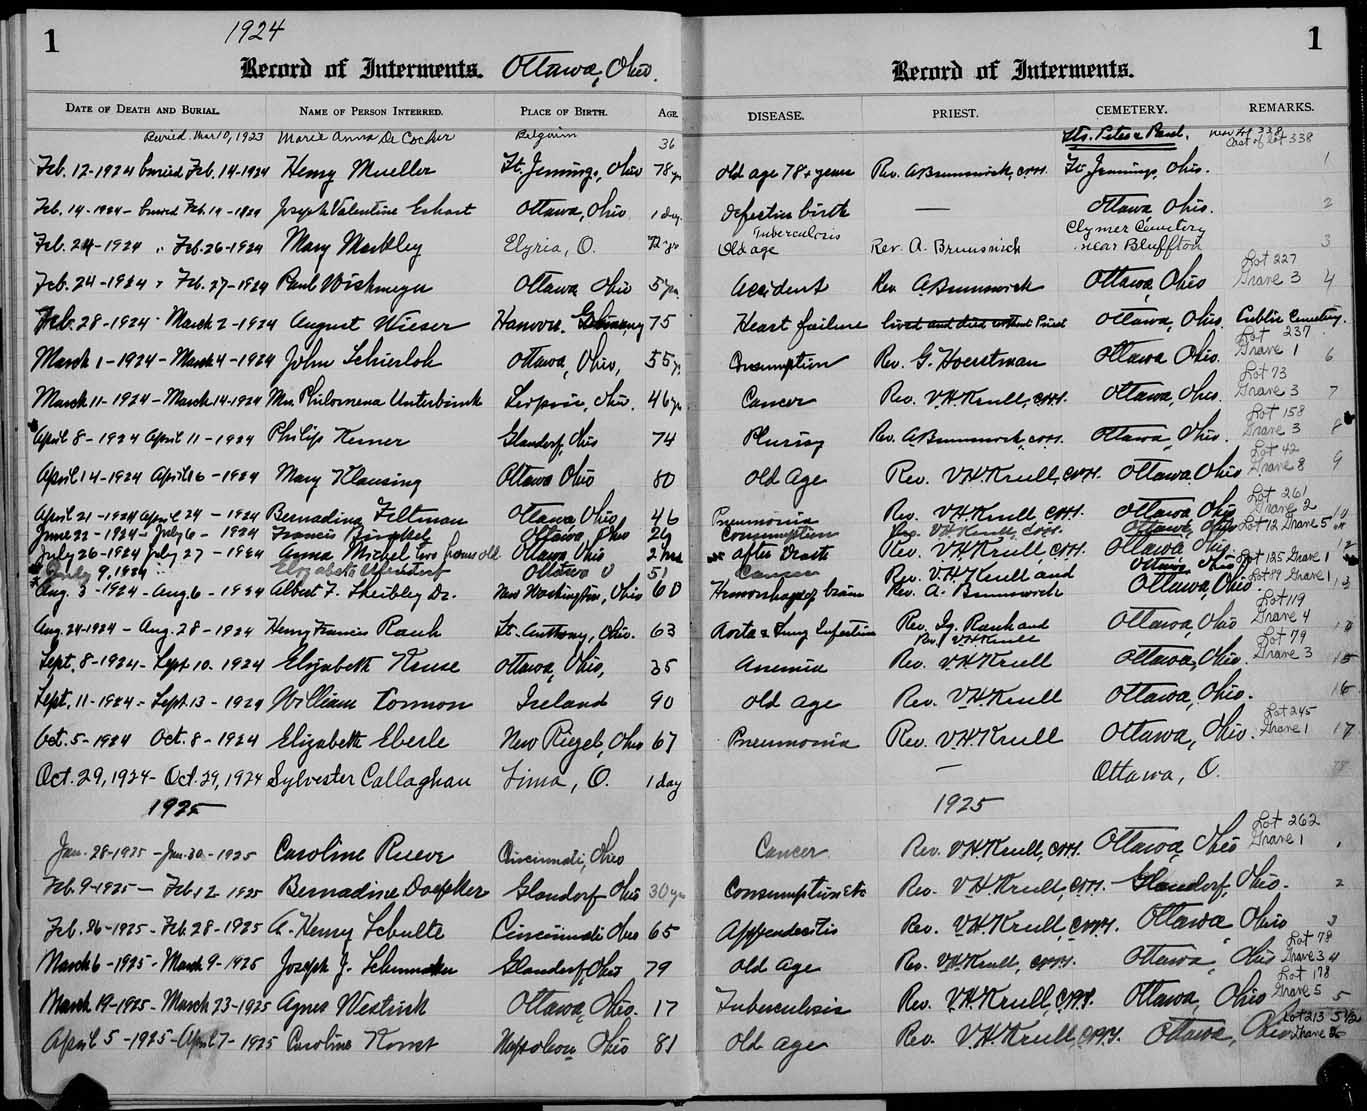 1
1924
Record of Interments. Ottawa, Ohio.
DATE OF DEATH AND BURIAL. NAME OF PERSON INTERRED. PLACE OF BIRTH. AGE.
Buried Mar 10, 1923 Marie Anna De Cocker Belguim 36
Feb. 12-1924 buried Feb. 14-1924 Henry Mueller Ft. Jennings, Ohio 78 yrs
Feb. 14-1924 - buried Feb. 14-1924 Joseph Valentine Ottawa, Ohio. 1 day.
Feb. 24-1924 " Feb. 26-1924 Mary Markley Elyria, O. 72 yrs
Feb. 24-1924 " Feb. 27-1924 Paul Ottawa Ohio 5 yrs.
Feb. 28-1924 - March 2-1924 August Wieser Hanover. Germany 75
March 1-1924 - March 4-1924 John Schierloh Ottawa, Ohio, 55 yrs
March 11-1924 - March 14-1924 Mrs. Philomena Unterbrink Leipsic, Ohio. 46 yrs
April 8-1924 April 11-1924 Philip Glandorf, Ohio 74
April 14-1924 April 16-1924 Mary Klausing Ottawa Ohio 80
April 21-1924 April 24-1924 Bernadina Feltman Ottawa Ohio 46
June 22-1924 - July 6-1924 Francis Ottawa, Ohio
July 26-1924 July 27-1924 Anna Michel two hours old Ottawa, Ohio
July 9, 1924 Elizabeth Ottawa O 51
Aug. 3-1924 - Aug. 6-1924 Albert F. Sheibley Dr. New Washington, Ohio 60
Aug. 24-1924 - Aug. 28-1924 Henry Francis Rauh St. Anthony, Ohio. 63
Sept. 8-1924 - Sept. 10. 1924 Elizabeth Kruse Ottawa, Ohio, 35
Sept. 11-1924 - Sept. 13-1924 William Connon Ireland 90
Oct. 5-1924 Oct. 8-1924 Elizabeth Eberle New Riegel, Ohio 67
Oct. 29, 1924 - Oct. 29, 1924 Sylvester Callaghan Lima, O. 1 day
1925
Jan. 28-1925 - Jan. 30-1925 Caroline Reeve Cincinnati, Ohio
Feb. 9-1925 - Feb. 12 1925 Bernadine Doepker Glandorf Ohio 30 yrs
Feb. 26-1925 - Feb. 28-1925 A. Henry Schulte Cincinnati Ohio 65
March 6-1925 - March 9-1925 Joseph J. Schumaker Glandorf, Ohio 79
March 19-1925 - March 23-1925 Agnes Westrick Ottawa, Ohio. 17
April 5-1925 - April 7-1925 Caroline Napoleon, Ohio 81
1
Record of Interments.
DISEASE. PRIEST. CEMETERY. REMARKS.
Sts. Peter & Paul. new lot 338
East of lot 338
old age 78 + years Rev. A Brunswick, C.PP.S. Ft. Jennings, Ohio. 1
Defective birth — Ottawa Ohio. 2
Tuberculosis Clymer Cemetery
Old age Rev. A. Brunswick near Bluffton 3
Lot 227
Accident Rev. A. Brunswick Ottawa, Ohio Grave 3 4
Heart failure lived and died without Priest Ottawa, Ohio. Public Cemetery.
Lot 237
Consumption Rev. G. Horstman Ottawa Ohio. Grave 1 6
Lot 73
Cancer Rev. V.H. Krull, C.PP.S. Ottawa, Ohio. Grave 3 7
Lot 158
Plurisy Rev. A. Brunswick, C.PP.S. Ottawa, Ohio. Grave 3 8
Lot 42
Old Age Rev. V.H. Krull, C.PP.S. Ottawa Ohio Grave 8 9
Lot 261
Pneumonia Rev. V.H. Krull C.PP.S. Ottawa Ohio Grave 2 10
Consumption Rev. V.H. Krull, C.PP.S. Ottawa, Ohio Lot 12 Grave 5 11
after Birth Rev. V.H. Krull, C.PP.S. Ottawa, Ohio 12
Cancer Ottawa, Ohio Lot 125 Grave 1
Hemorrhage of brain Rev. V.H. Krull and Rev. A. Brunswick Ottawa, Ohio. Lot 89 Grave 1 13
Lot 119
Aorta & Lung Infection Rev. Ig. Rauh and Ottawa, Ohio Grave 4
Rev. V.H. Krull Lot 79
Anemia Rev. V.H. Krull Ottawa, Ohio. Grave 3 15
Old Age Rev. V.H. Krull Ottawa, Ohio. 16
Lot 245
Pneumonia Rev. V.H. Krull Ottawa, Ohio. Grave 1 17
— Ottawa, O. 18
1925
Lot 262
Cancer Rev. V.H. Krull, C.PP.S. Ottawa, Ohio Grave 1 1
Consumption etc Rev. V.H. Krull, C.PP.S. Glandorf, Ohio. 2
Appendecitis Rev. V.H. Krull, C.PP.S. Ottawa Ohio 3
Lot 78
Old Age Rev. V.H. Krull, C.PP.S. Ottawa, Ohio Grave 3 4
Lot 178
Tuberculosis Rev. V.H. Krull, C.PP.S. Ottawa, Ohio Grave 5 5
Lot 213 5 1/2
Old Age Rev. V.H. Krull, C.PP.S. Ottawa, Ohio Grave